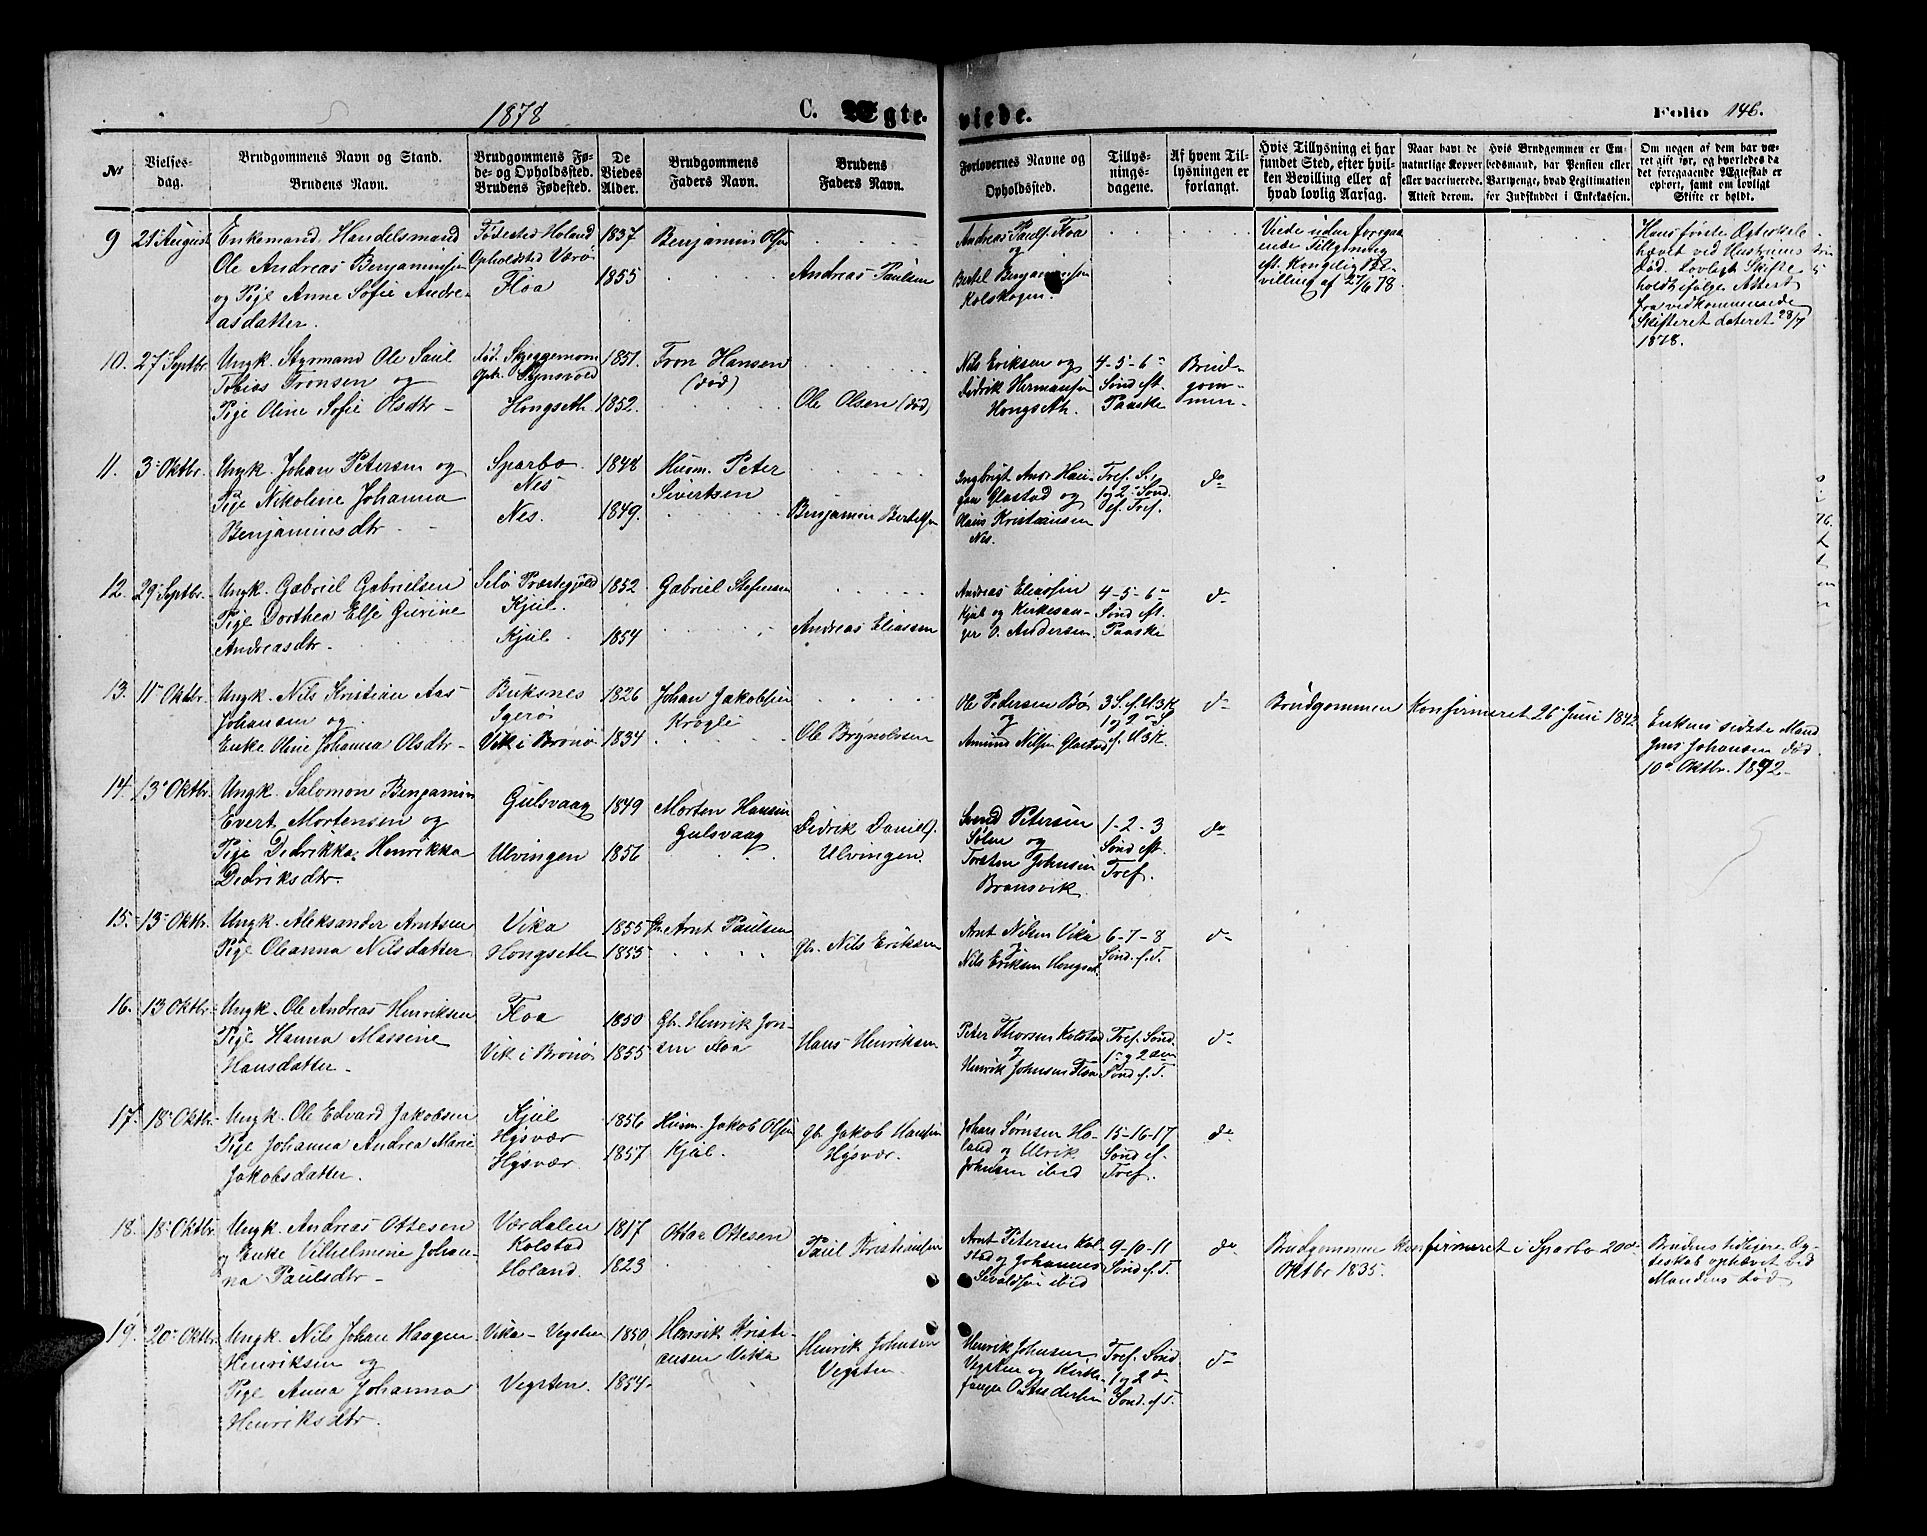 1878
C. Ægte-
viede.
Folio 146.
Nr
Vielses-
dag.
Brudgommens Navn og Stand.
Brudens Navn.
Brudgommens Fø-
de- og Opholdssted.
Brudens Fødested.
De
Viedes
Alder.
Brudgommens
Faders Navn.
Brudens
Faders Navn.
Forlovernes Navne og
Opholdssted.
Tillys-
nings-
dagene.
Af hvem Til-
lysningen er
forlangt.
Hvis Tillysning ei har
fundet Sted, efter hvil-
ken Bevilling eller af
hvad lovlig Aarsag.
Naar havt de
naturlige Kopper
eller vaccinerede.
Attest derom.
Hvis Brudgommen er Em-
bedsmand, har Pension eller
Vartpenge, hvad Legitimation
for Indskuddet i Enkekassen.
Om nogen af dem har væ-
ret gift før, og hvorledes da
det foregaaende Ægteskab er
ophørt, samt om lovligt
Skifte er holdt.
9 21 August
Enkemand. Handelsmand
Ole Andreas Benjaminsen
og Pige Anne Sofie Andre-
asdatter.
Fødested Holand
Opholdsted Værø
Floa
1837
1855
Benjamin Olsen
Andreas Paulsen
Andreas Pauls. Floa
og
Bertel Benjaminsen
Kolskogen.
Viede uden foregaa-
ende Tillysning
eft. Kongelig Be-
villing af 27/6 78
Hans første Ægteskab
hævet ved Hustruens
Død. Lovligt Skifte
holdt ifølge Attest
fra vedkommende
Skifteret dateret 23/7
1878.
10. 27 Septbr.
Ungk. Styrmand Ole Paul
Tobias Fronsen og
Pige Oline Sofie Olsdtr
Fød. Skjeggemoen
Oph. Stensvold
Hongseth.
1851.
1852.
Fron Hansen
(død)
Ole Olsen (død)
Nils Eriksen og
Didrik Hermansen
Hongseth.
4-5-6
Sønd. eft.
Paaske
Brud-
gom-
men.
11. 3 Oktbr.
Ungk. Johan Petersen og
Pige Nikoline Johanna
Benjaminsdtr
Sparbo
Nes
Nes.
1848
1849.
Husm. Peter
Sivertsen
Benjamin Bertelsen
Ingbrigt Andr. Hau-
gan Glastad og
Olaus Kristiansen
Nes.
Tref. S.,
1 og 2 Sønd.
ef. Tref.
do
12. 29 Septbr.
Ungk. Gabriel Gabrielsen
Pige Dorthea Else Gurine
Andreasdtr.
Selø Præstegjeld
Kjul.
Kjul
1852
1854
Gabriel Stefensen
Andreas Eliassen
Andreas Eliassen
Kjul og Kirkesan-
ger O. Andersen
4-5-6
Sønd. eft.
Paaske
do
13. 11 Oktbr
Ungk. Nils Kristian Aas
Johansen og
Enke Oline Johanna Olsdtr
Buksnes
Igerø
Vik i Brønø
1826
1834
Johan Jakobsen
Krogli
Ole Brynelvsen
Ole Pedersen Bø
og
Amund Nilsen Glastad
3 S. f. H3K
1 og 2 S.
f. H3K.
do
Brudgommen Konfirmeret 26 Juni 1842
Enkens sidste Mand
Jens Johansen død
10 Oktbr. 1872
14. 13 Oktbr.
Ungk. Salomon Benjamin
Evert Mortensen og
Pige Didrikka Henrikka
Didriksdtr.
Gulsvaag
Ulvingen
1849
1856
Morten Hansen
Gulsvaag
Didrik Daniels.
Ulvingen.
Svend Petersen
Sølen og
Torsten Johnsen
Bransvik
1-2-3
Sønd. eft.
Tref.
do
15. 13 Oktbr.
Ungk. Aleksander Arntsen
Pige Oleanna Nilsdatter
Vika
Hongseth
1855
1855
Gbr. Arnt Paulsen
Gbr. Nils Eriksen
Arnt Nilsen Vika
og
Nils Eriksen Hongset
6-7-8
Sønd. f. T.
do
16. 13 Oktbr.
Ungk. Ole Andreas Henriksen
Pige Hanna Massine
Hansdatter
Floa
Vik i Brønø
1850
1855
Gbr. Henrik Jon-
sen Floa
Hans Henriksen
Peter Thorsen Kolstad
og
Henrik Johnsen Floa
Tref. Sønd.
1 og 2 den
Sønd. f. T.
do
17. 18 Oktbr.
Ungk. Ole Edvard Jakobsen
Pige Johanna Andrea Marie
Jakobsdatter.
Kjul
Hysvær
Hysvær.
1856
1857
Husm. Jakob Olsen
Kjul.
Gbr. Jakob Hansen
Hysvær.
Johan Sørnsen Ho-
land og Ulrik
Johnsen ibid
15-16-17
Sønd. ef.
Tref.
do
18. 18 Oktbr
Ungk. Andreas Ottesen
og Enke Vilhelmine Johan-
na Paulsdtr
Værdalen
Kolstad
Holand.
1817
1823
Ottar Ottesen
Paul Kristiansen
Arnt Petersen Kol-
stad og Johannes
Sivaldsen ibid
9-10-11
Sønd. f. T.
do
Brudgommen Konfirmeret i Sparbo 20de
Oktbr 1835.
Brudens tidligere Æg-
teskab ophævet ved
Mandens Død
19. 20 Oktbr.
Ungk. Nils Johan Haagen
Henriksen og
Pige Anna Johanna
Henriksdtr.
Vika - Vegsten
Vegsten.
1850
1854
Henrik Kristi-
ansen Vika
Henrik Johnsen
Vegsten.
Henrik Johnsen
Vegsten og Kirke-
sanger O. Andersen
Tref. Sønd.
1 og 2 d
Sønd. ef. T.
do